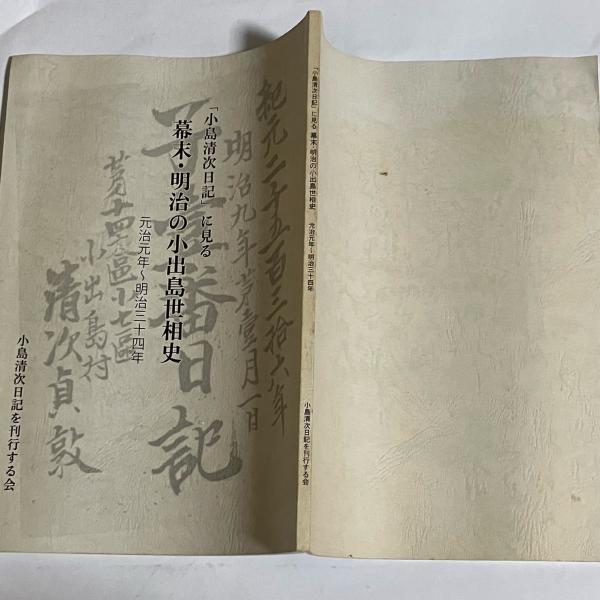 「小島清次日記」に見る
幕末・明治の小出島世相史
元治元年～明治三十四年
小島清次日記を刊行する会
紀元二千五百三拾六年
明治九年第壹月一日
番日記
第十四大區小七區
小出島村
清次貞敦
「小島清次日記」に見る 幕末・明治の小出島世相史 元治元年～明治三十四年 小島清次日記を刊行する会